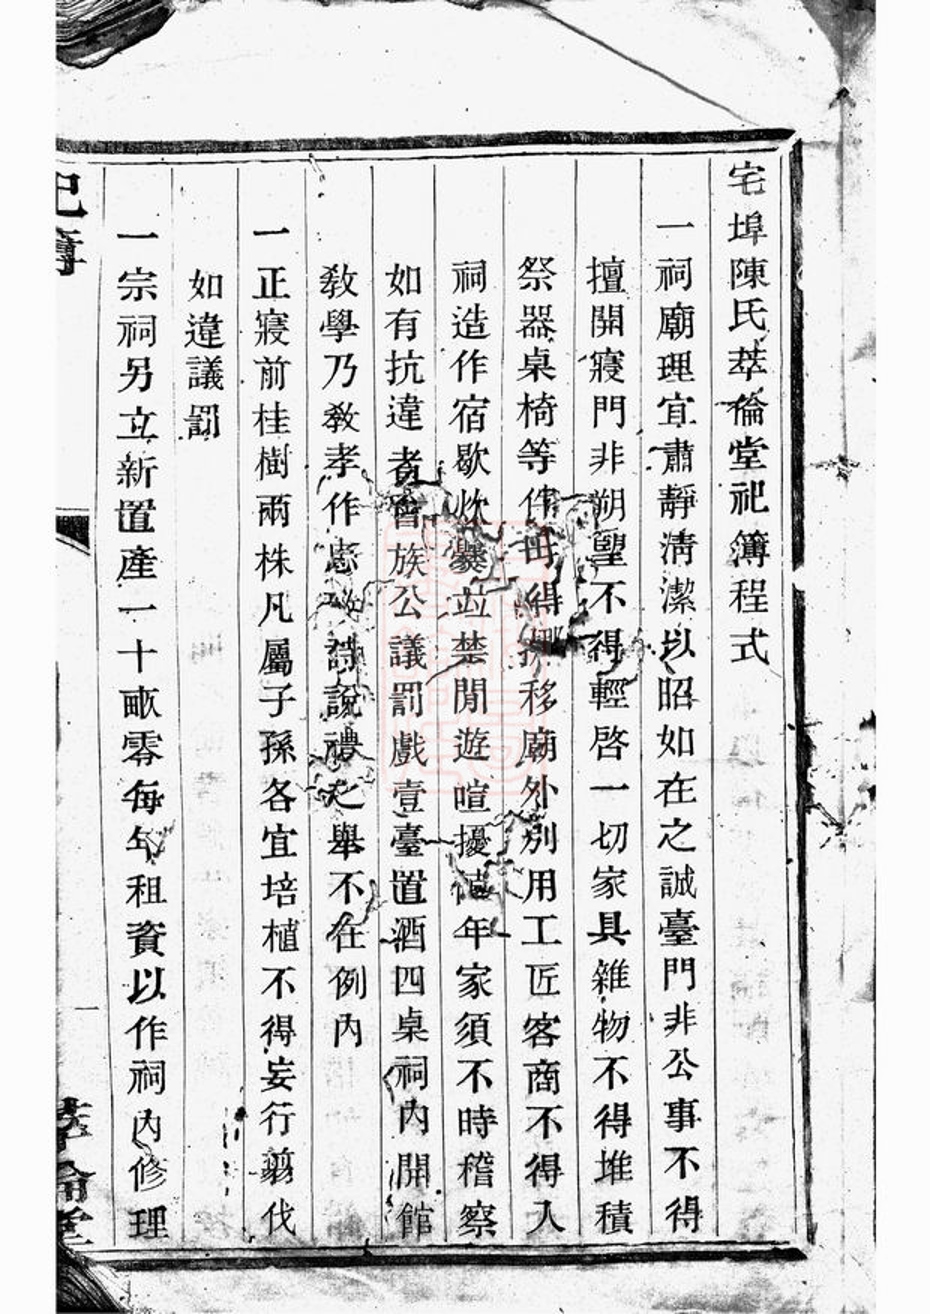 宅埠陳氏萃倫堂祀簿程式
一祠廟理宜肅靜清潔以昭如在之誠臺門非公事不得
擅開寢門非朔望不得輕啓一切家具雜物不得堆積
祭器桌椅等件毋得挪移廟外別用工匠客商不得入
祠造作宿歇炊爨並禁閒遊喧擾值年家須不時稽察
如有抗違者會族公議罰戲壹臺置酒四桌祠內開館
敎學乃敎孝作忠詩說禮之舉不在例內
一正寢前桂樹兩株凡屬子孫各宜培植不得妄行剪伐
如違議罰
一宗祠另立新置產一十畝零每年租資以作祠內修理
祀簿
萃倫堂